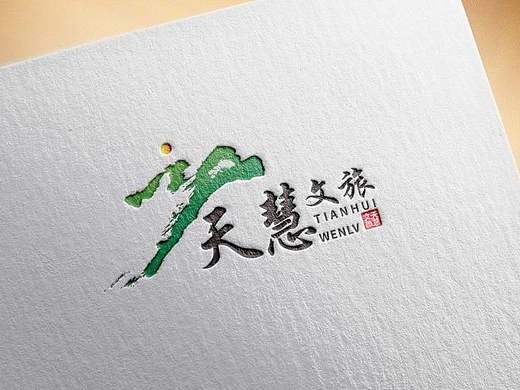 天慧文旅
TIANHUI
WENLV